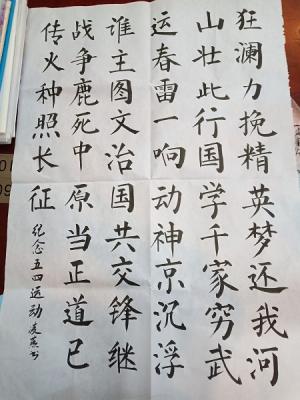 狂澜力挽精英梦还我河
山壮此行国学千家穷武
运春雷一响动神京沉浮
谁主图文治国共交锋继
战争鹿死中原当正道已
传火种照长征
纪念五四运动 书